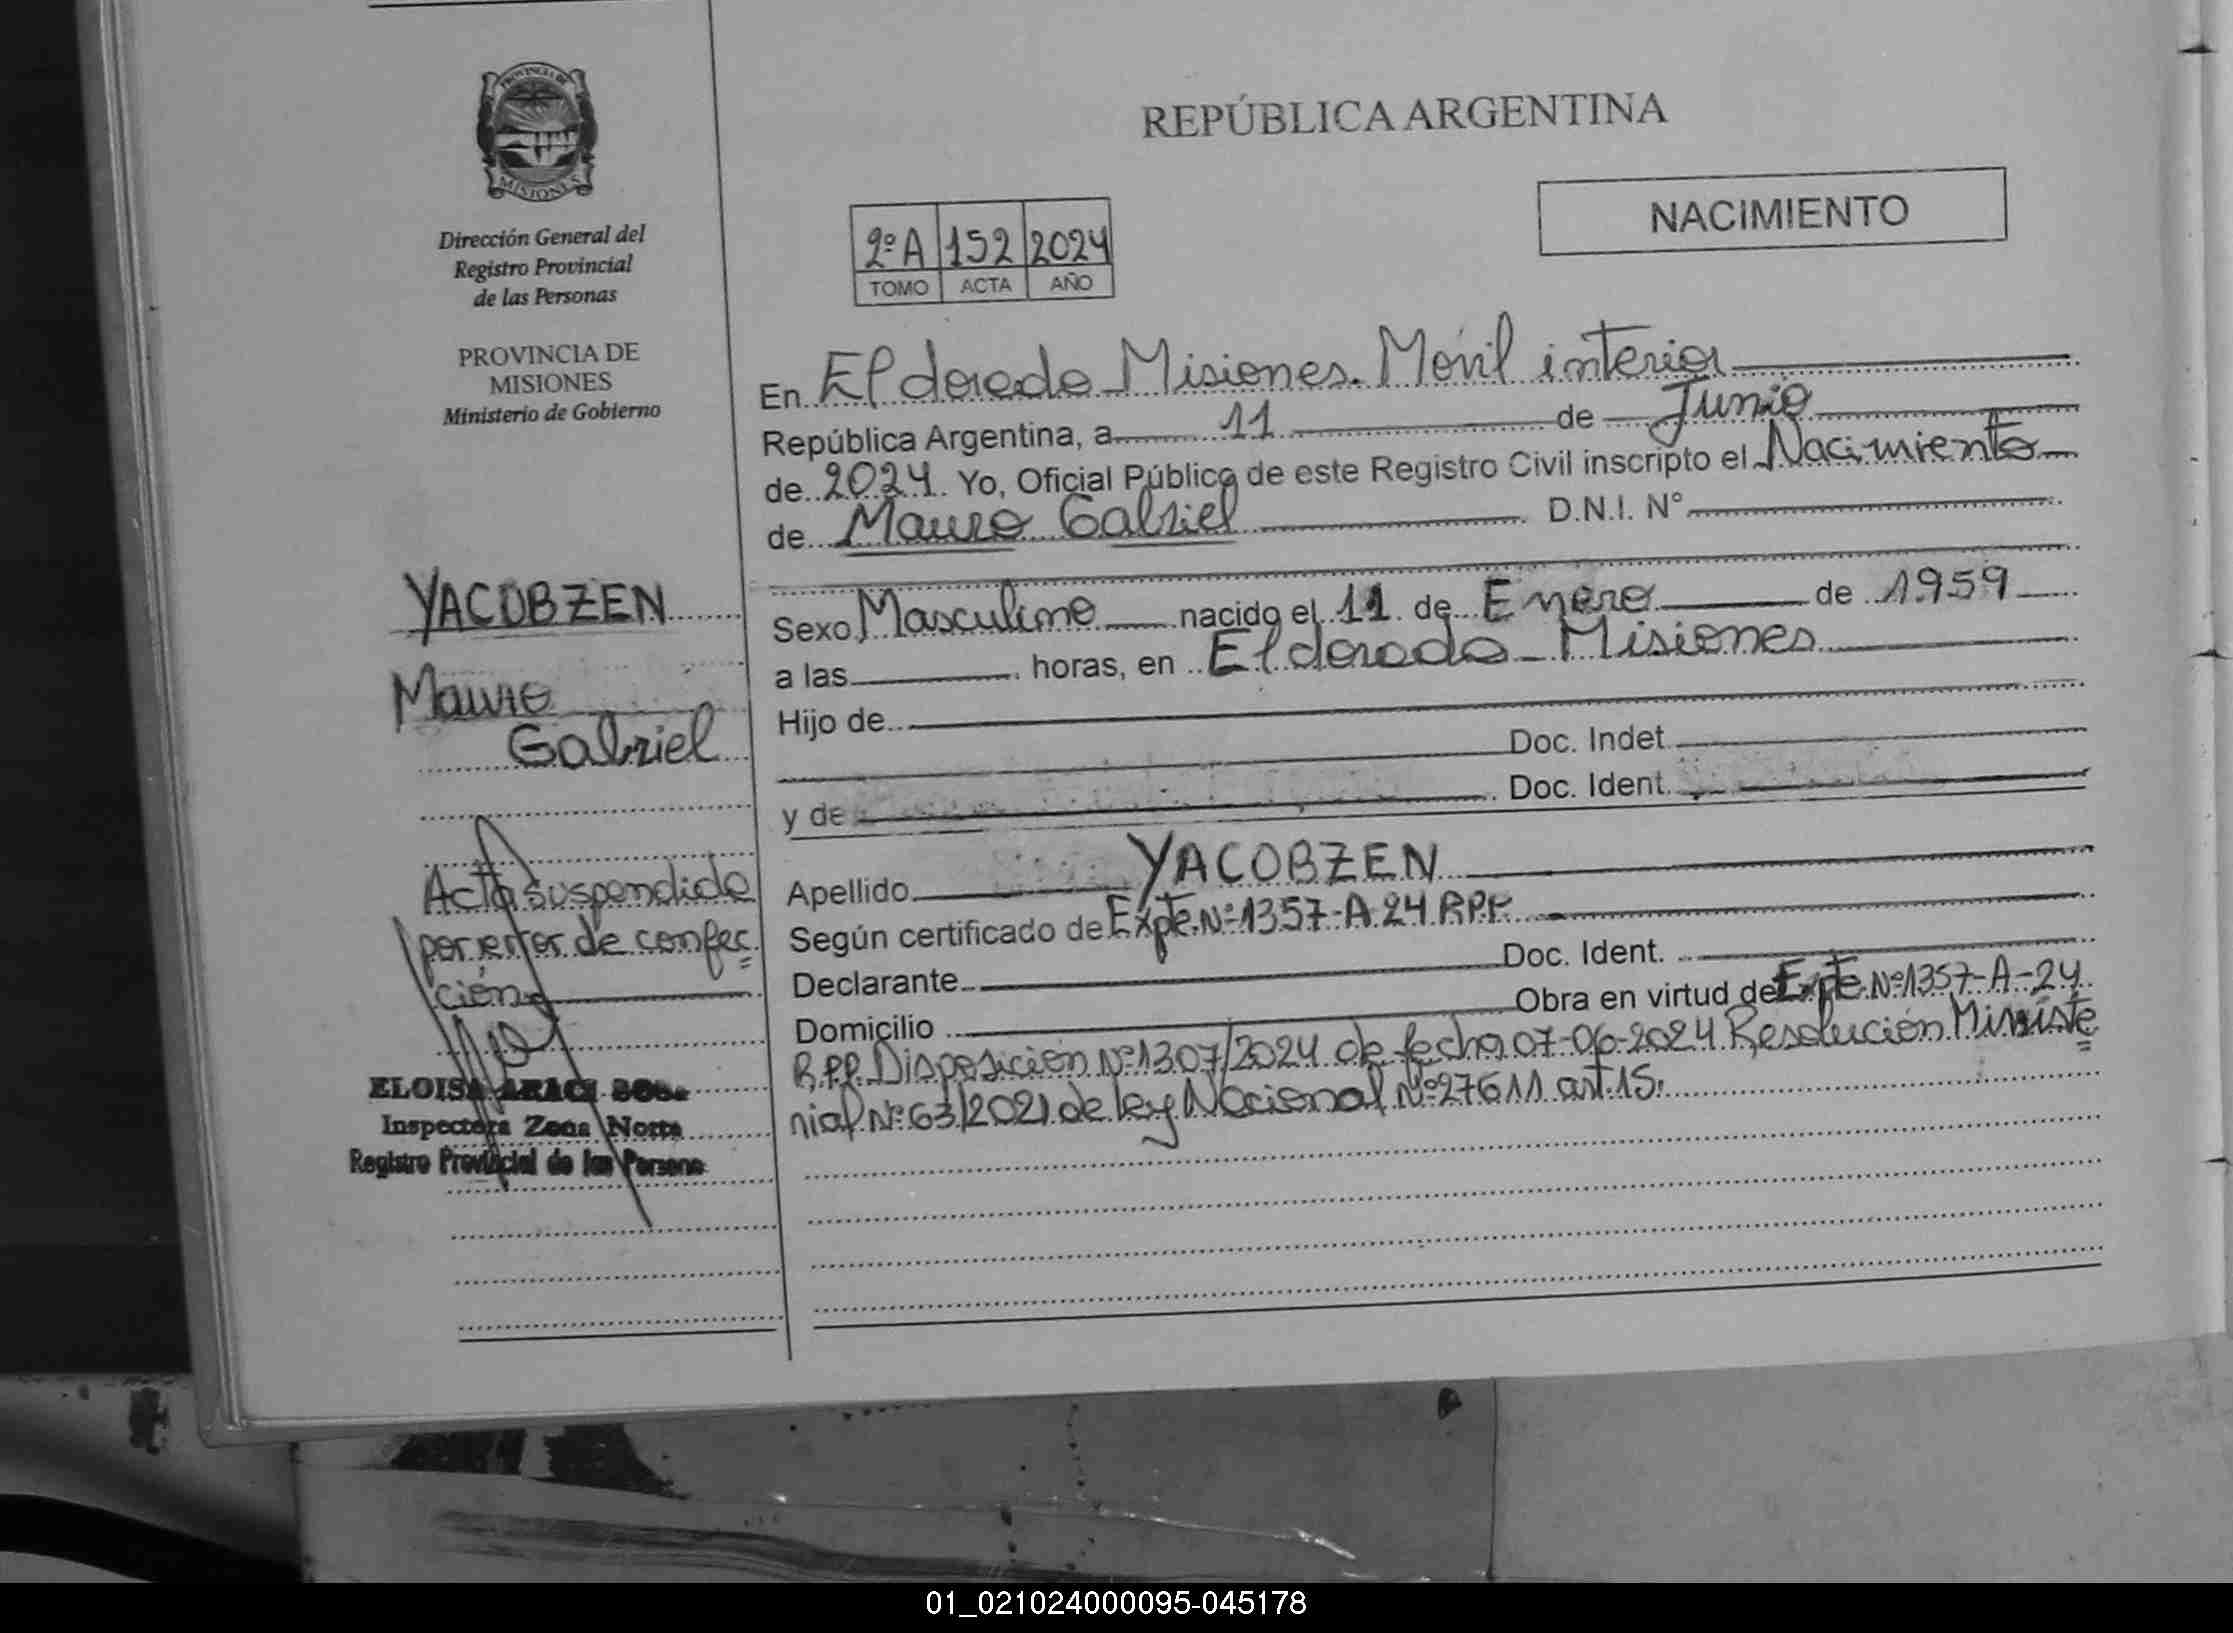 PROVINCIA DE
MISIONES
Dirección General del
Registro Provincial
de las Personas
PROVINCIA DE
MISIONES
Ministerio de Gobierno
YACOBZEN
Mauro
Gabriel
Acta suspendida
por error de confec
ción
ELOISA ARACI
Inspectora Zona Norte
Registro Provincial de las Persona
REPÚBLICA ARGENTINA
NACIMIENTO
2º A 152 2024
TOMO ACTA AÑO
En Eldorado Misiones. Móvil interior
República Argentina, a 11 de Junio
de 2024 Yo, Oficial Público de este Registro Civil inscripto el Nacimiento
de Mauro Gabriel D.N.I. N°
Sexo Masculino nacido el 11 de Enero de 1959
a las horas, en Eldorado Misiones
Hijo de
Doc. Indet
y de Doc. Ident.
Apellido YACOBZEN
Según certificado de Expte. Nº 1357-A-24 R.P.P.
Declarante Doc. Ident.
Domicilio Obra en virtud de Expte Nº 1357-A-24
R.P.P. Disposición Nº 1307/2024 de fecha 07-06-2024 Resolución Ministe
nial Nº 63/2021 de ley Nacional Nº 27611 art. 15.
01_021024000095-045178